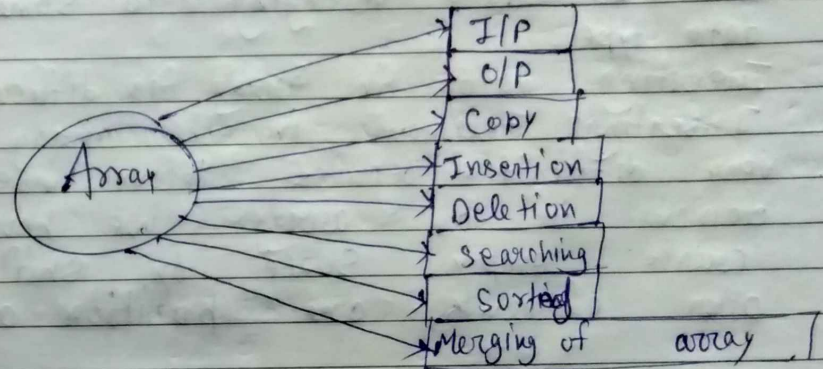 I/P
O/P
Copy
Array
Insertion
Deletion
Searching
Sorting
Merging of array